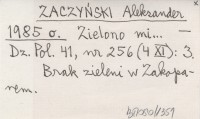 ZACZYŃSKI Aleksander
1985 o. Zielono mi... —
Dz. Pol. 41, nr 256 (4 XI): 3.
Brak zieleni w Zakopa-
nem.